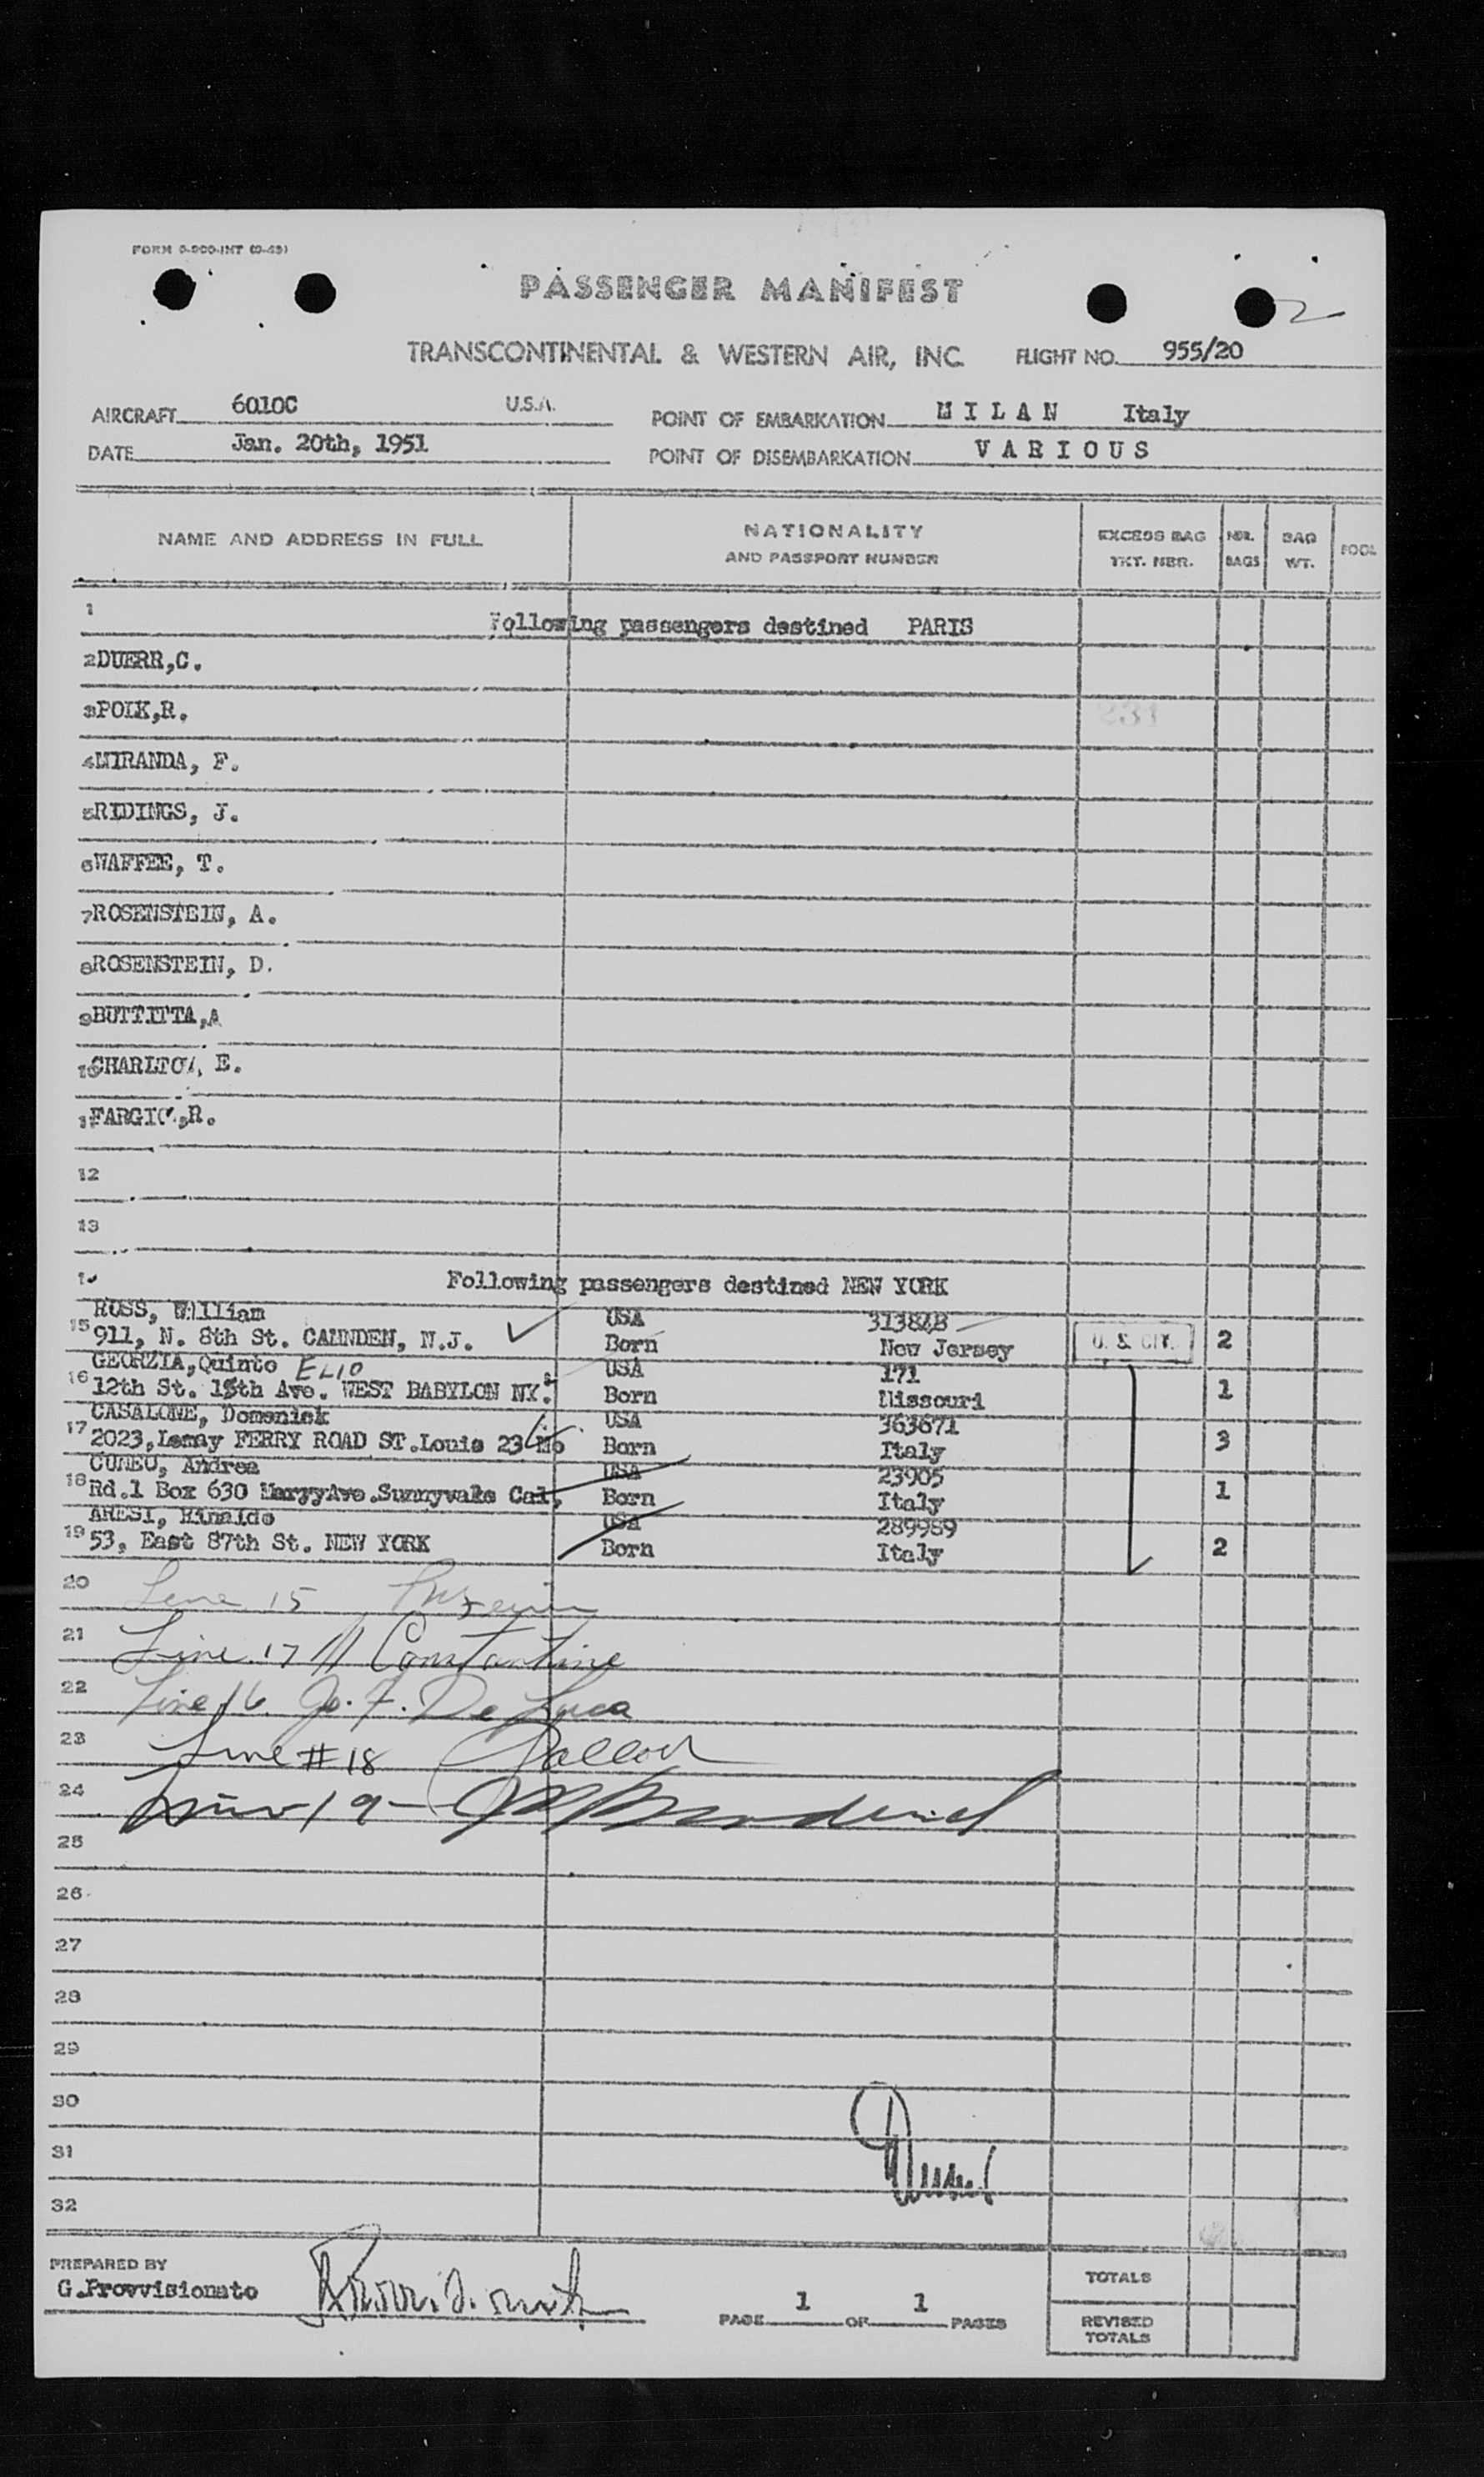 FORM 0-900-INT (9-49)
PASSENGER MANIFEST
2
TRANSCONTINENTAL & WESTERN AIR, INC. FLIGHT NO. 955/20
AIRCRAFT 6010C U.S.A. POINT OF EMBARKATION MILAN Italy
DATE Jan. 20th, 1951 POINT OF DISEMBARKATION VARIOUS
NAME AND ADDRESS IN FULL NATIONALITY AND PASSPORT NUMBER EXCESS BAG TKT. NBR. NBR. BAGS BAG WT.
1 Following passengers destined PARIS
2 DUERR,C.
3 POIK,R. 231
4 MIRANDA, F.
5 RIDINGS, J.
6 WAFFEE, T.
7 ROSENSTEIN, A.
8 ROSENSTEIN, D.
9 BUTTITTA,A
10 CHARLTON, E.
11 R.
12
13
14 Following passengers destined NEW YORK
ROSS, William USA 31384B
15 911, N. 8th St. CAMNDEN, N.J. Born New Jersey U. S. CIT. 2
GEORZIA,Quinto ELIO USA 171
16 12th St. 15th Ave. WEST BABYLON NY. Born Missouri 1
CASALONE, Domenick USA 363671
17 2023,Lemay FERRY ROAD ST.Louis 23 Mo Born Italy 3
CUNEO, Andrea USA 23905
18 Rd.1 Box 630 MaryyAve.Sunnyvale Cal, Born Italy 1
ARESI, Rinaldo USA 289989
19 53, East 87th St. NEW YORK Born Italy 2
20 Line 15
21 Line 17 Constantine
22 Line 16. Jo. F. De Luca
23 Line #18
24 Line 19-
25
26
27
28
29
30
31
32
PREPARED BY
G.Provvisionato
PAGE 1 OF 1 PAGES
TOTALS
REVISED TOTALS